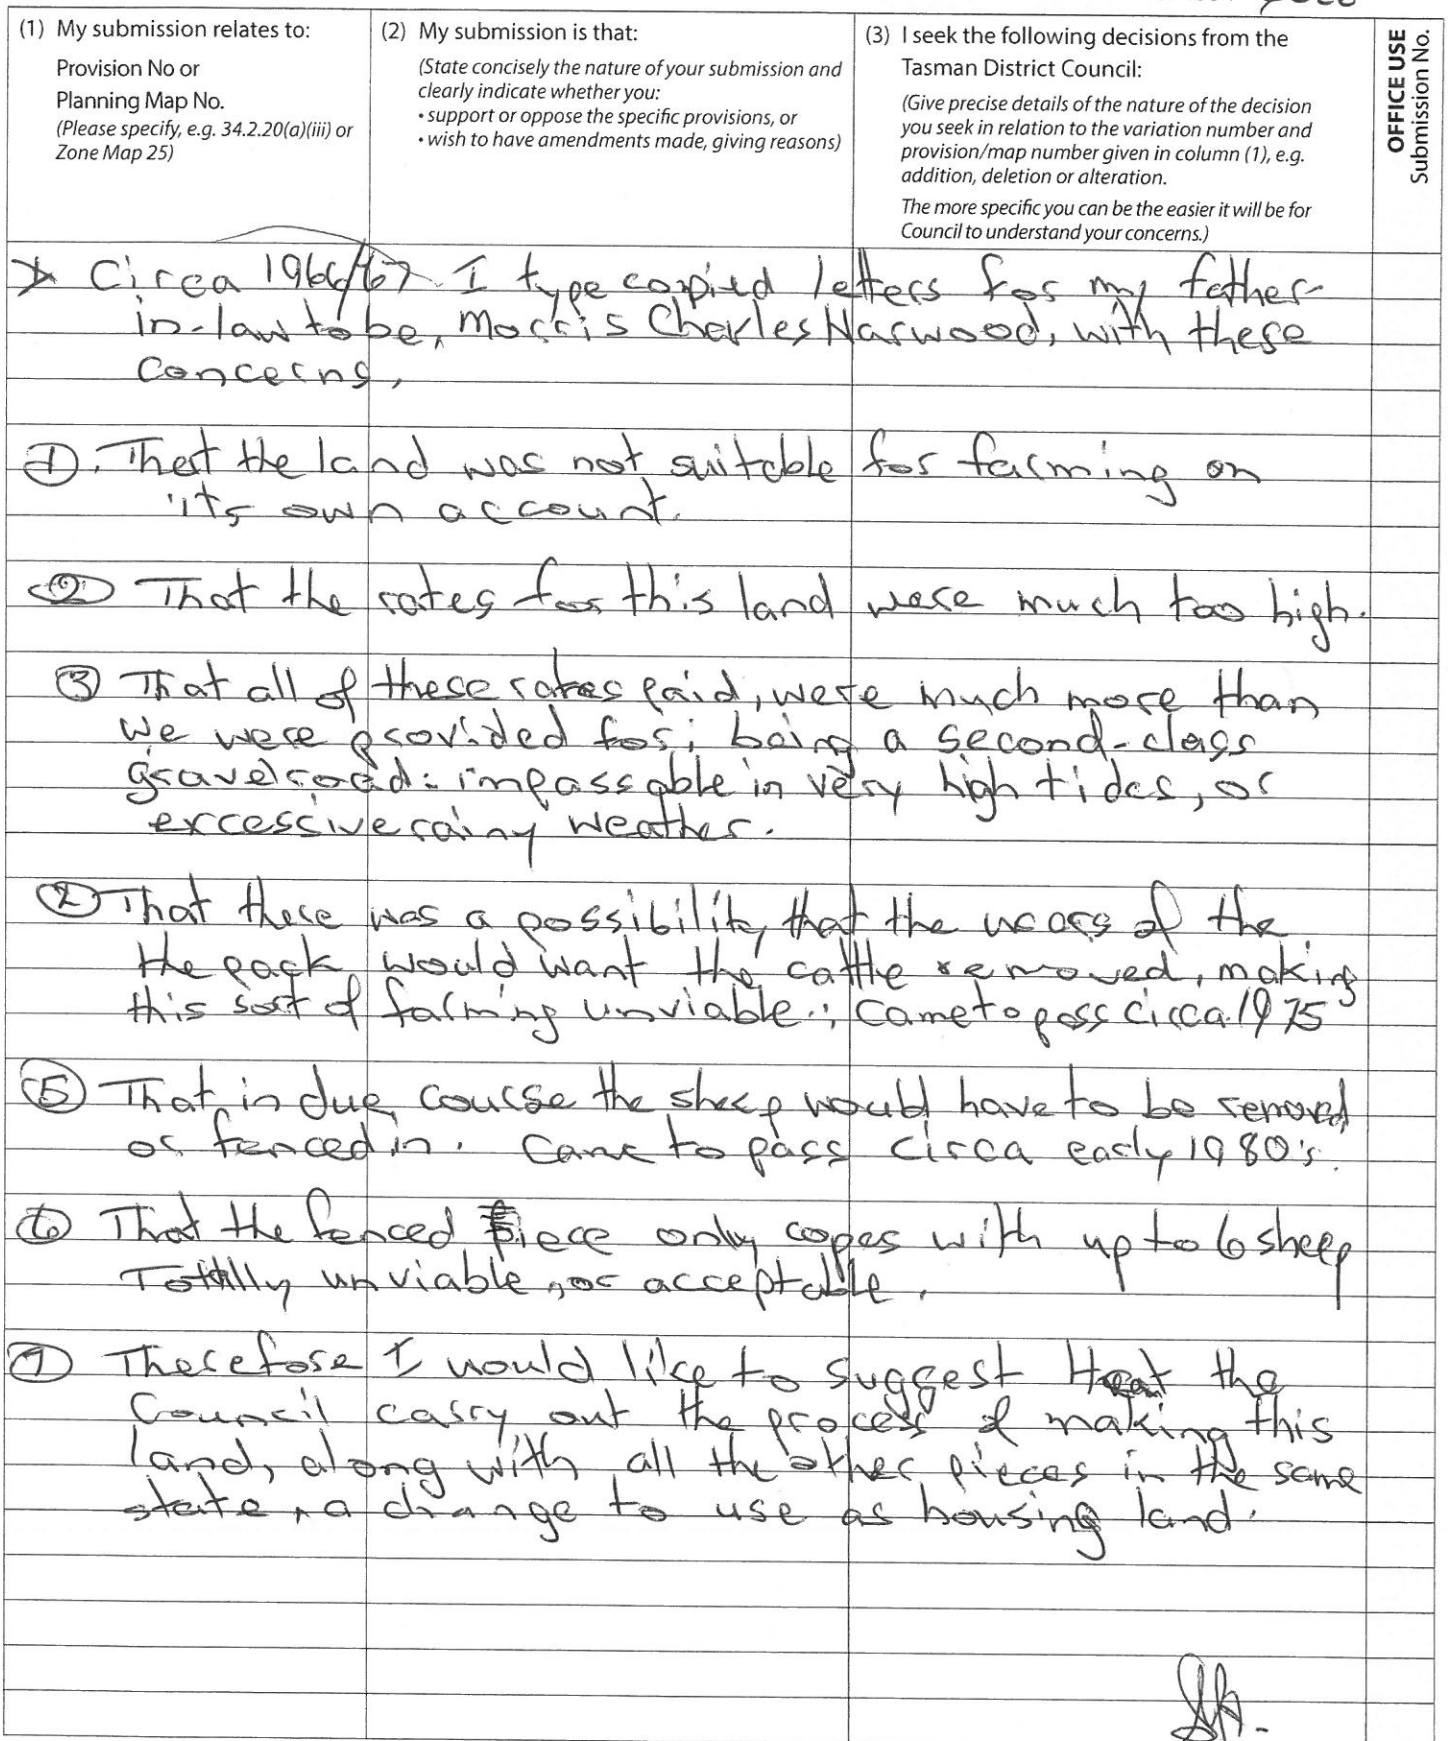 (1) My submission relates to:
Provision No or
Planning Map No.
(Please specify, e.g. 34.2.20(a)(iii) or
Zone Map 25)
(2) My submission is that:
(State concisely the nature of your submission and
clearly indicate whether you:
• support or oppose the specific provisions, or
• wish to have amendments made, giving reasons)
(3) I seek the following decisions from the
Tasman District Council:
(Give precise details of the nature of the decision
you seek in relation to the variation number and
provision/map number given in column (1), e.g.
addition, deletion or alteration.
The more specific you can be the easier it will be for
Council to understand your concerns.)
OFFICE USE
Submission No.
Circa 1966/67 I type copied letters for my father-
in-law to be, Morris Charles Harwood, with these
concerns,
① That the land was not suitable for farming on
its own account.
② That the rates for this land were much too high.
③ That all of these rates paid, were much more than
we were provided for; being a second-class
gravel road: impassable in very high tides, or
excessive rainy weather.
That there was a possibility that the users of the
the park, would want the cattle removed, making
this sort of farming unviable; came to pass circa 1975
⑤ That, in due, course the sheep would have to be removed
or fenced in. Came to pass circa early 1980's.
⑥ That the fenced piece only copes with up to 6 sheep
Totally unviable, or acceptable.
⑦ Therefore I would like to suggest that the
Council carry out the process of making this
land, along with all the other pieces in the same
state, a change to use as housing land.